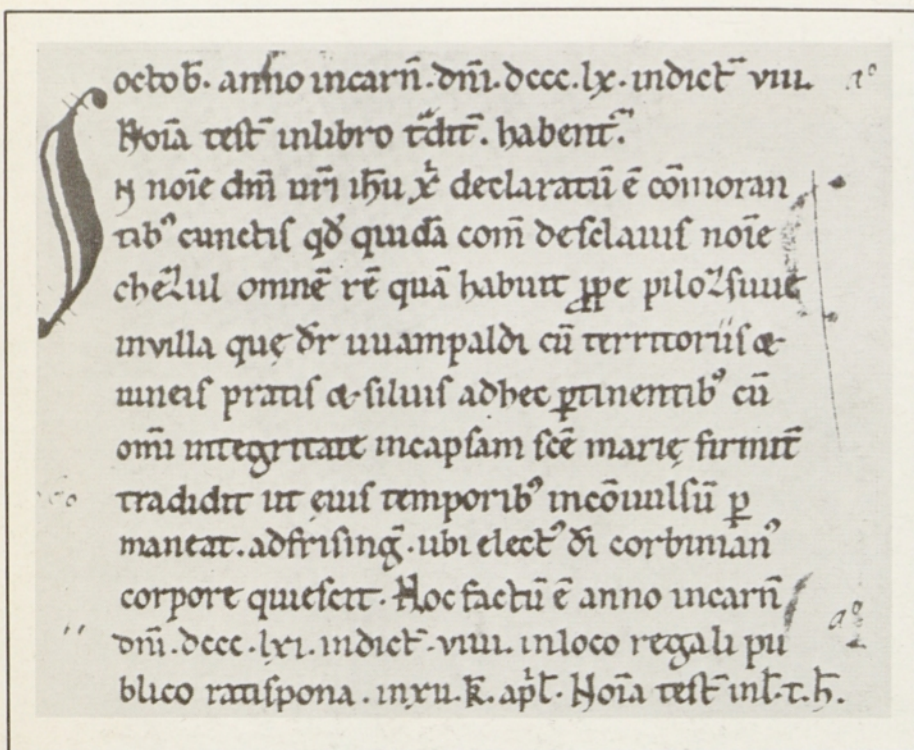 octob̄. anno incarn̄. dn̄i. dccc. lx. indict̄ viii.
Noīa test̄ inlibro t̄dit̄. habent̄.
IN noīe dn̄i nr̄i ih̄u xp̄i declaratū ē cōmoran
tib⁹ cunctis qđ quidā com̄ desclauis noīe
chezul omnē rē quā habuit ꝓpe piloꝝsuue
invilla quę dr̄ uuampaldi cū territoriis &
uineis pratis & siluis adhec ꝑtinentib⁹ cū
om̄i integritate incapsam sc̄e marię firmit̄
tradidit ut ęuis temporib⁹ incōuulsū ꝑ
maneat. adfrisinḡ. ubi elect⁹ dī corbinian⁹
corpore quiescit. Hoc factū ē anno incarn̄
dn̄i. dccc. lxi. indict̄. viiii. inloco regali pu
blico ratispona. inxii. k̄. apl̄. Noīa test̄ inl̄. t. h̄.